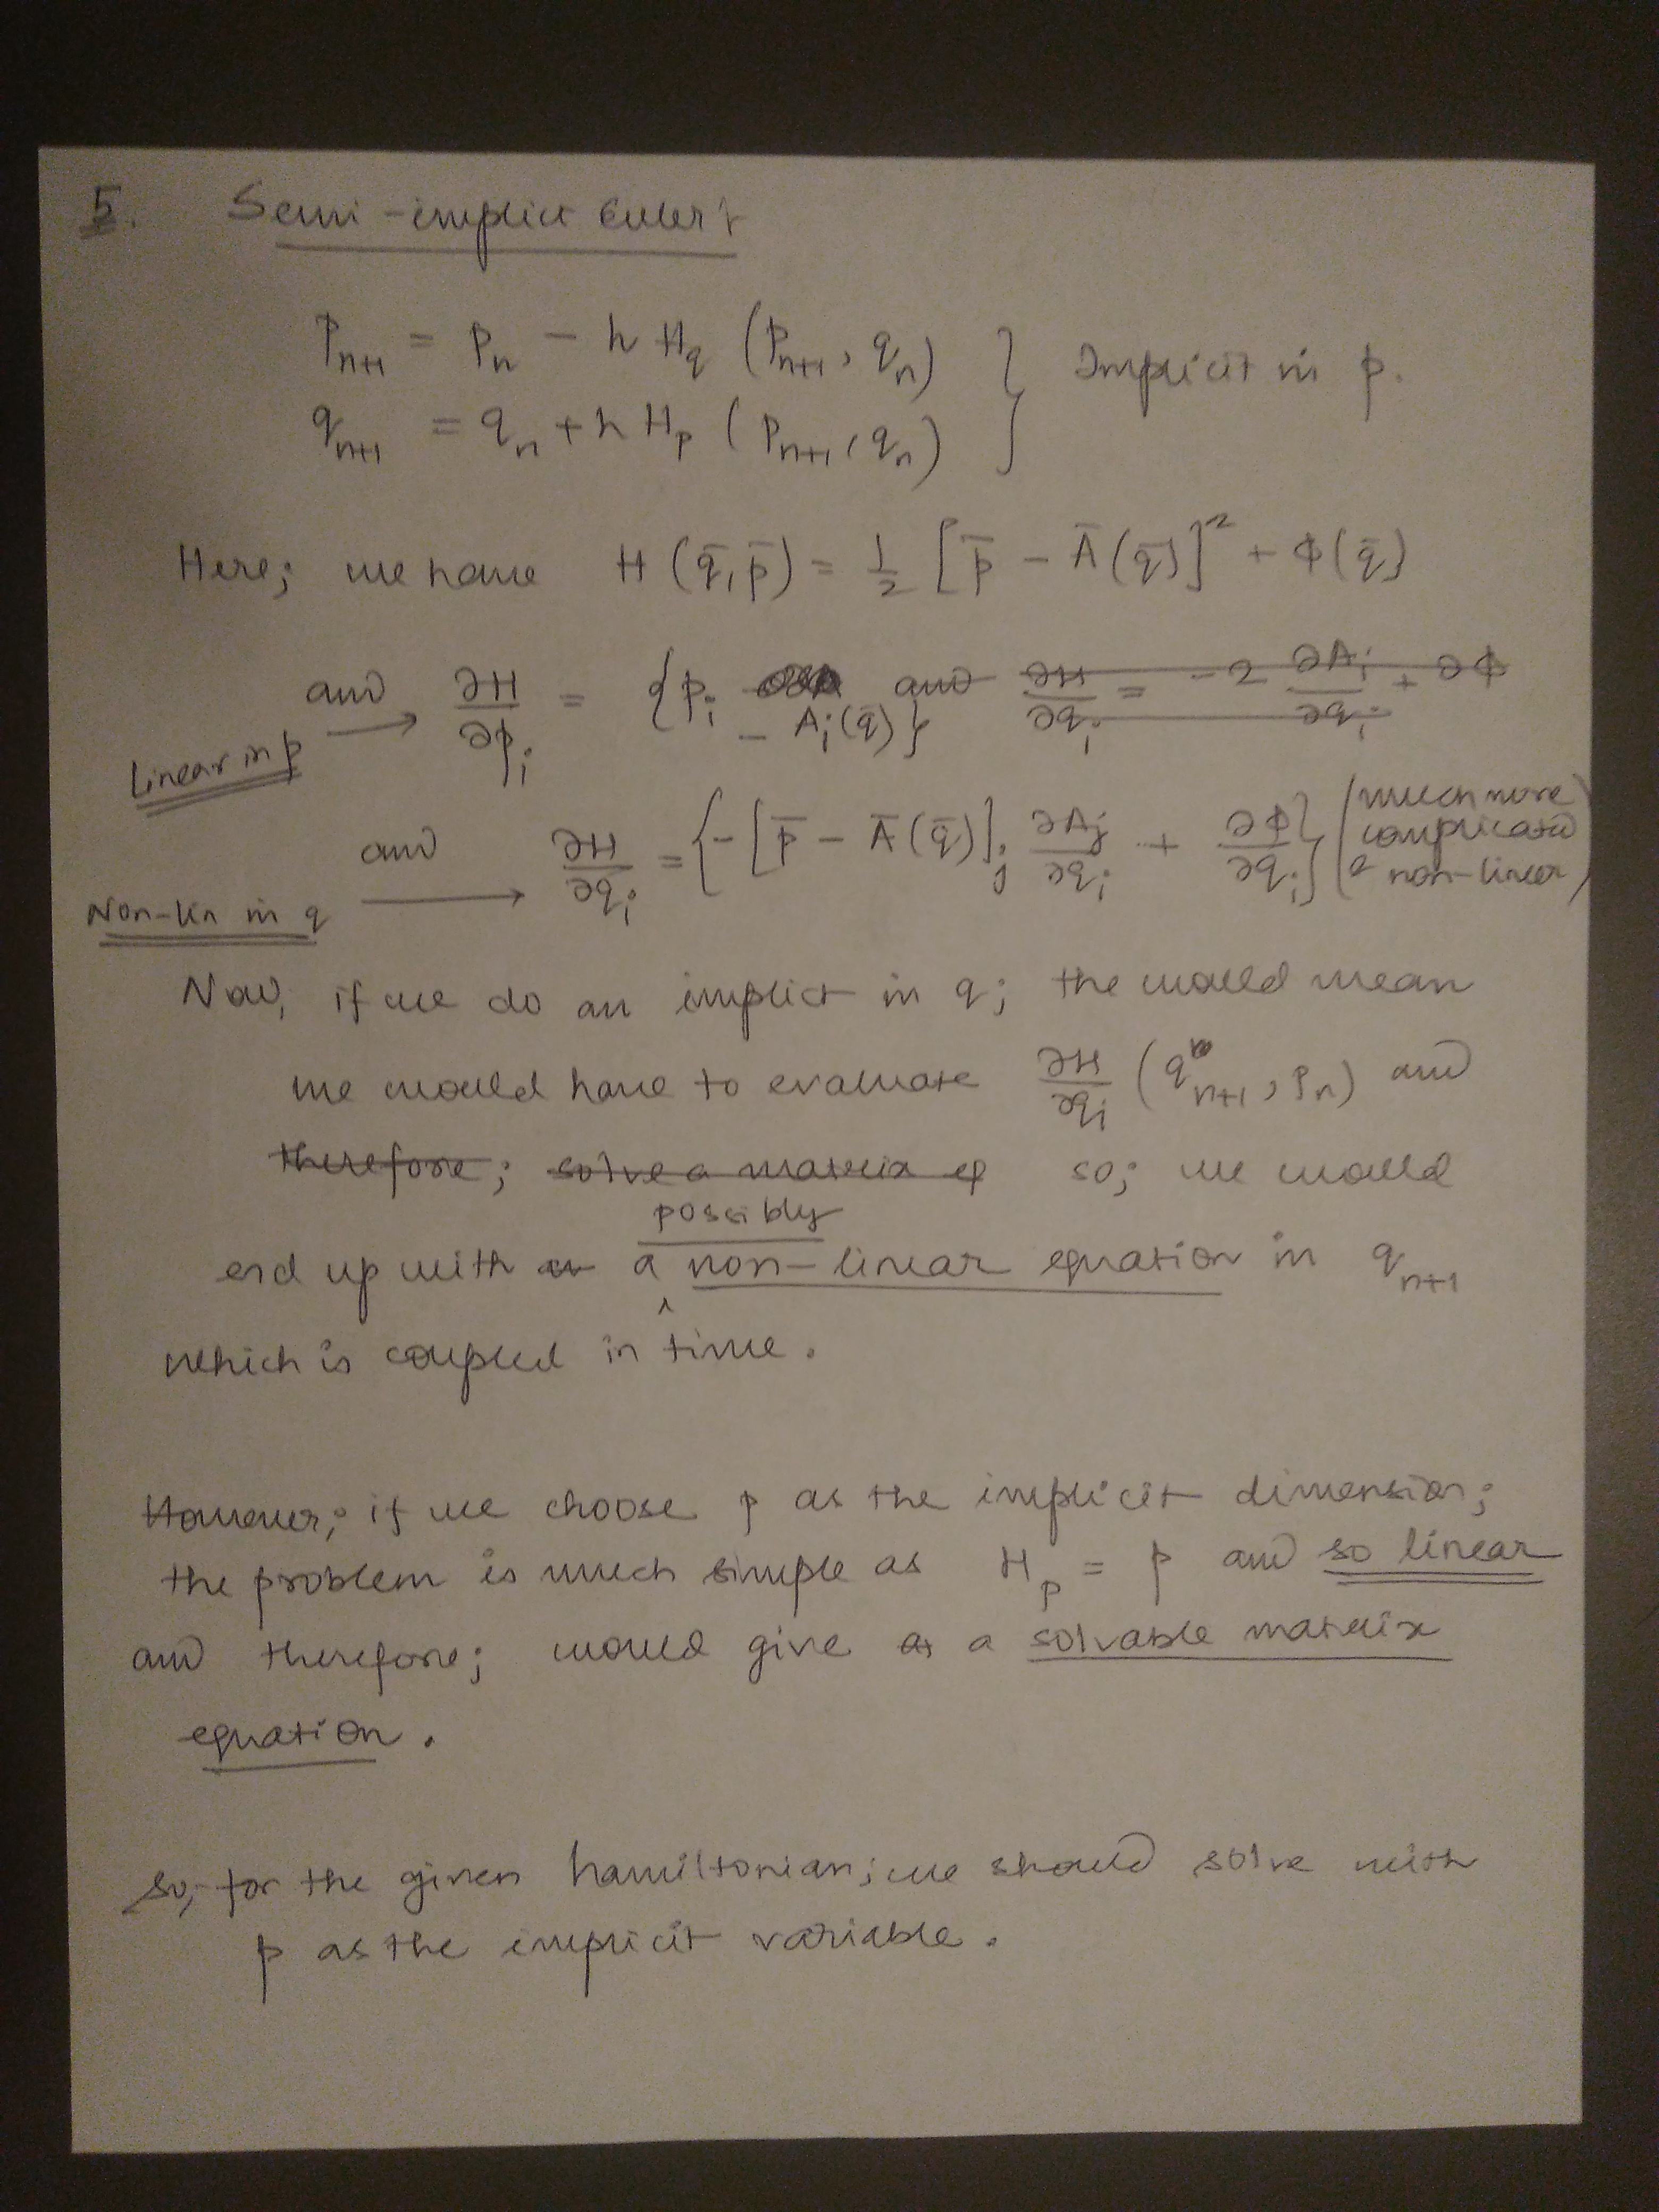 5. Semi-implicit Euler:
p_{n+1} = p_n - h H_q (p_{n+1}, q_n) } Implicit in p.
q_{n+1} = q_n + h H_p (p_{n+1}, q_n)
Here; we have H(q̄, p̄) = 1/2 [p̄ - Ā(q̄)]² + Φ(q̄)
and ∂H/∂p_i = {p_i - A_i(q̄)} and ∂H/∂q_i = -2 ∂A_i/∂q_i + ∂Φ
Linear in p →
and ∂H/∂q_i = {-[p̄ - Ā(q̄)]_j ∂A_j/∂q_i + ∂Φ/∂q_i} (much more complicated & non-linear)
Non-lin in q →
Now, if we do an implict in q; the would mean
we would have to evaluate ∂H/∂q_i (q_{n+1}, p_n) and
therefore; solve a matrix eq so; we would
possibly
end up with a non-linear equation in q_{n+1}
which is coupled in time.
However; if we choose p as the implicit dimension;
the problem is much simple as H_p = p and so linear
and therefore; would give a solvable matrix
equation.
So, for the given hamiltonian; we should solve with
p as the implicit variable.